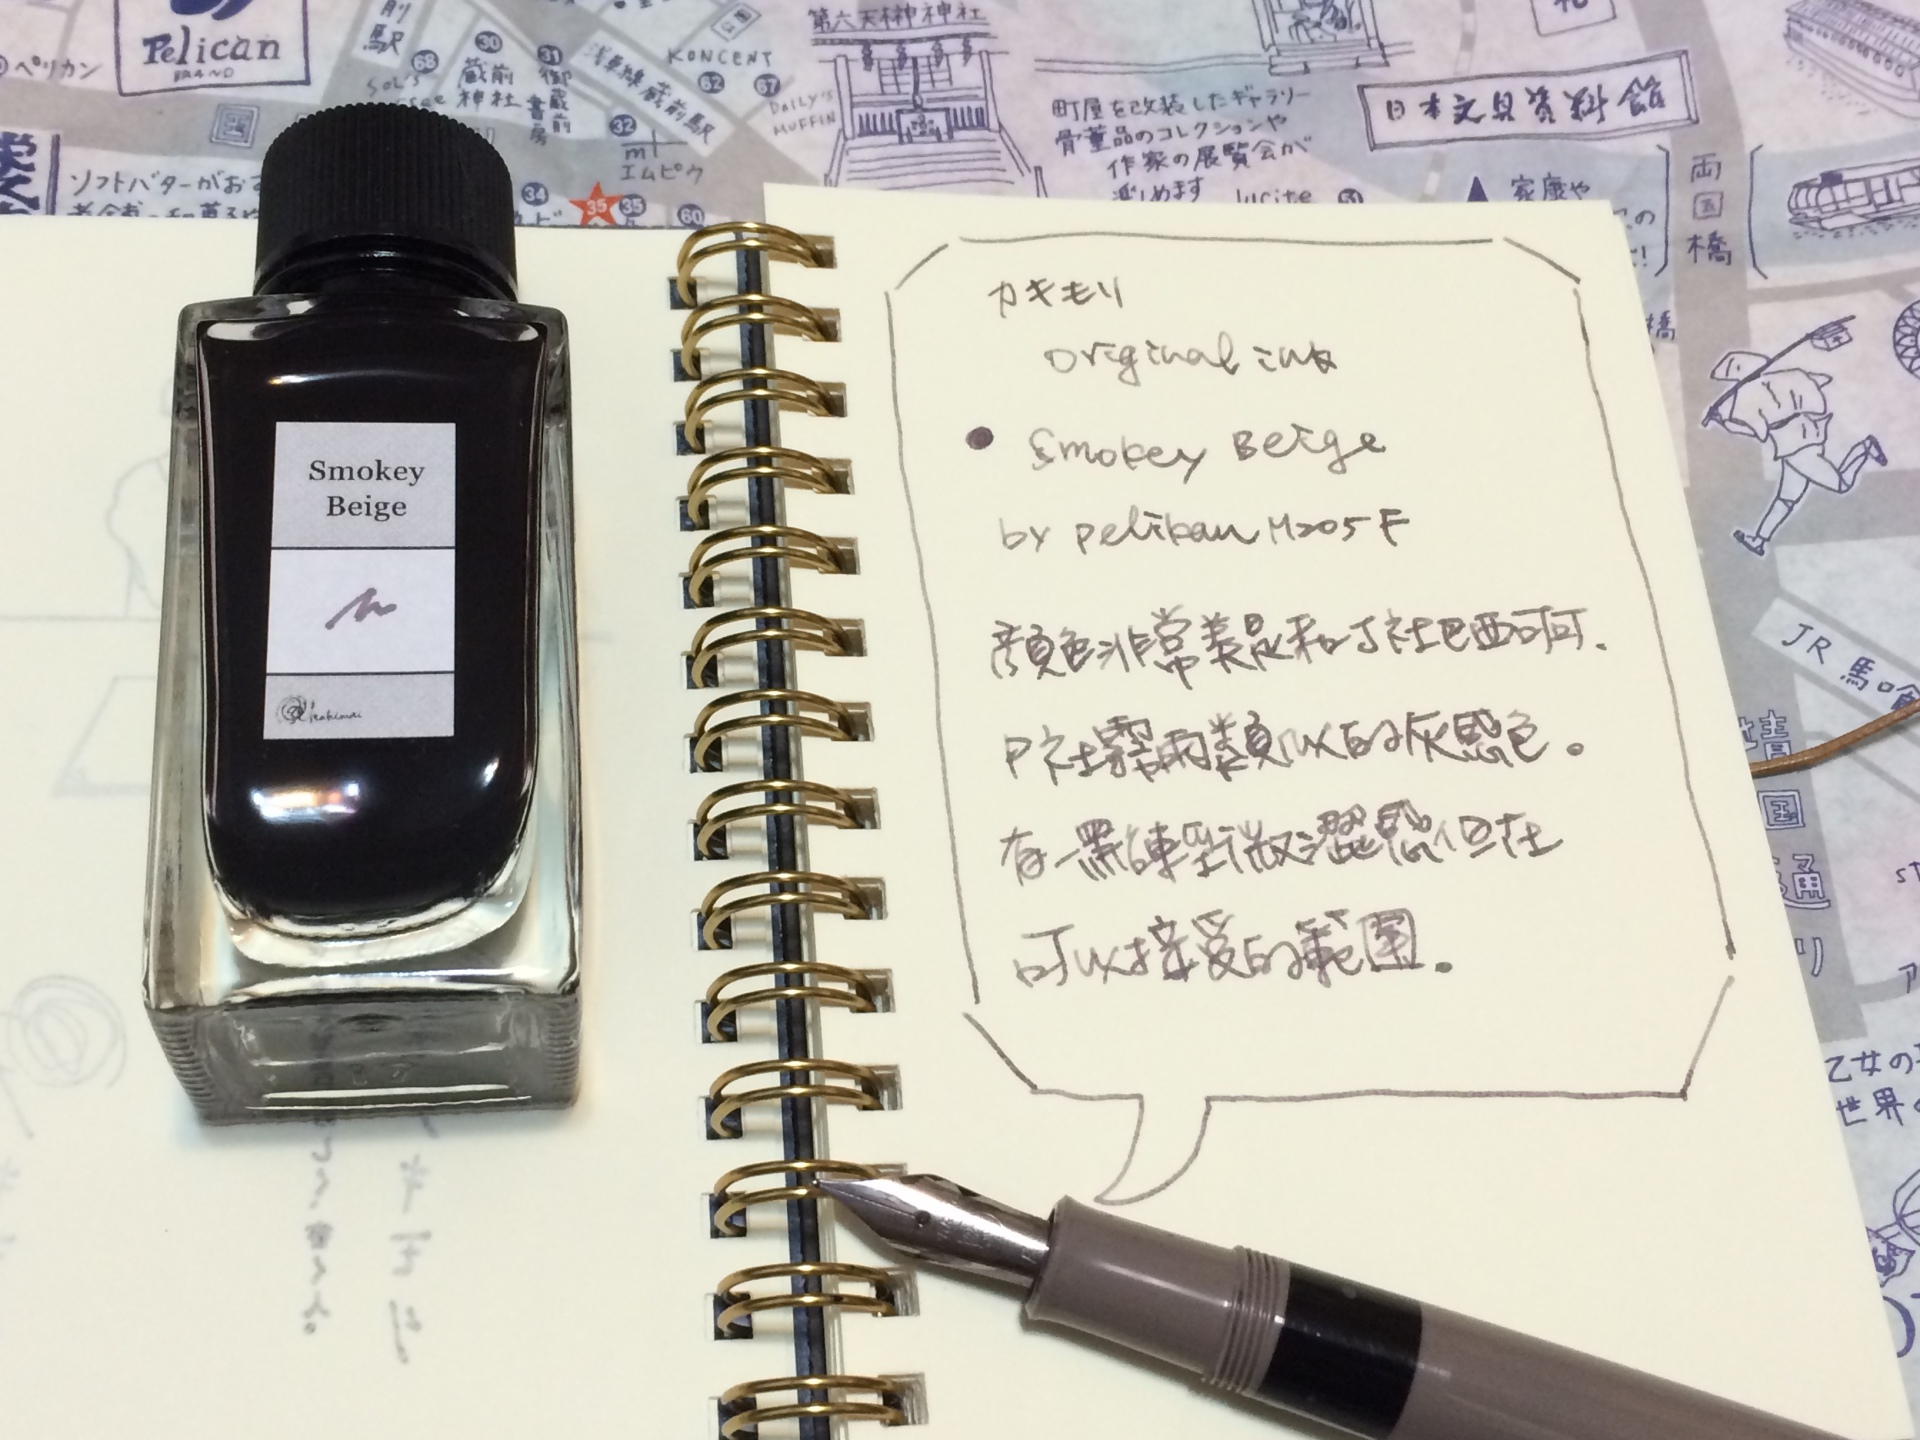 Pelican
BRAND
ペリカン
前
駅
68
30
蔵前
神社
31
御蔵前
書房
浅草線 蔵前駅
KONCENT
62
67
DAILY'S
MUFFIN
32
m+
エムピウ
34
35
35
60
ソフトバターがお
第六天榊神社
町屋を改装したギャラリー
骨董品のコレクションや
作家の展覧会が
楽しめます
lucite
51
日本文具資料館
両国橋
家康や
の
橋
Smokey
Beige
カキモリ
original ink
Smokey Beige
by pelikan M205 F
顏色非常美是和J社巴西可可、
P社霧雨類似的灰階色。
有一點練墨微澀感但在
可以接受的範圍。
JR 馬喰
国
通
り
乙女の
世界